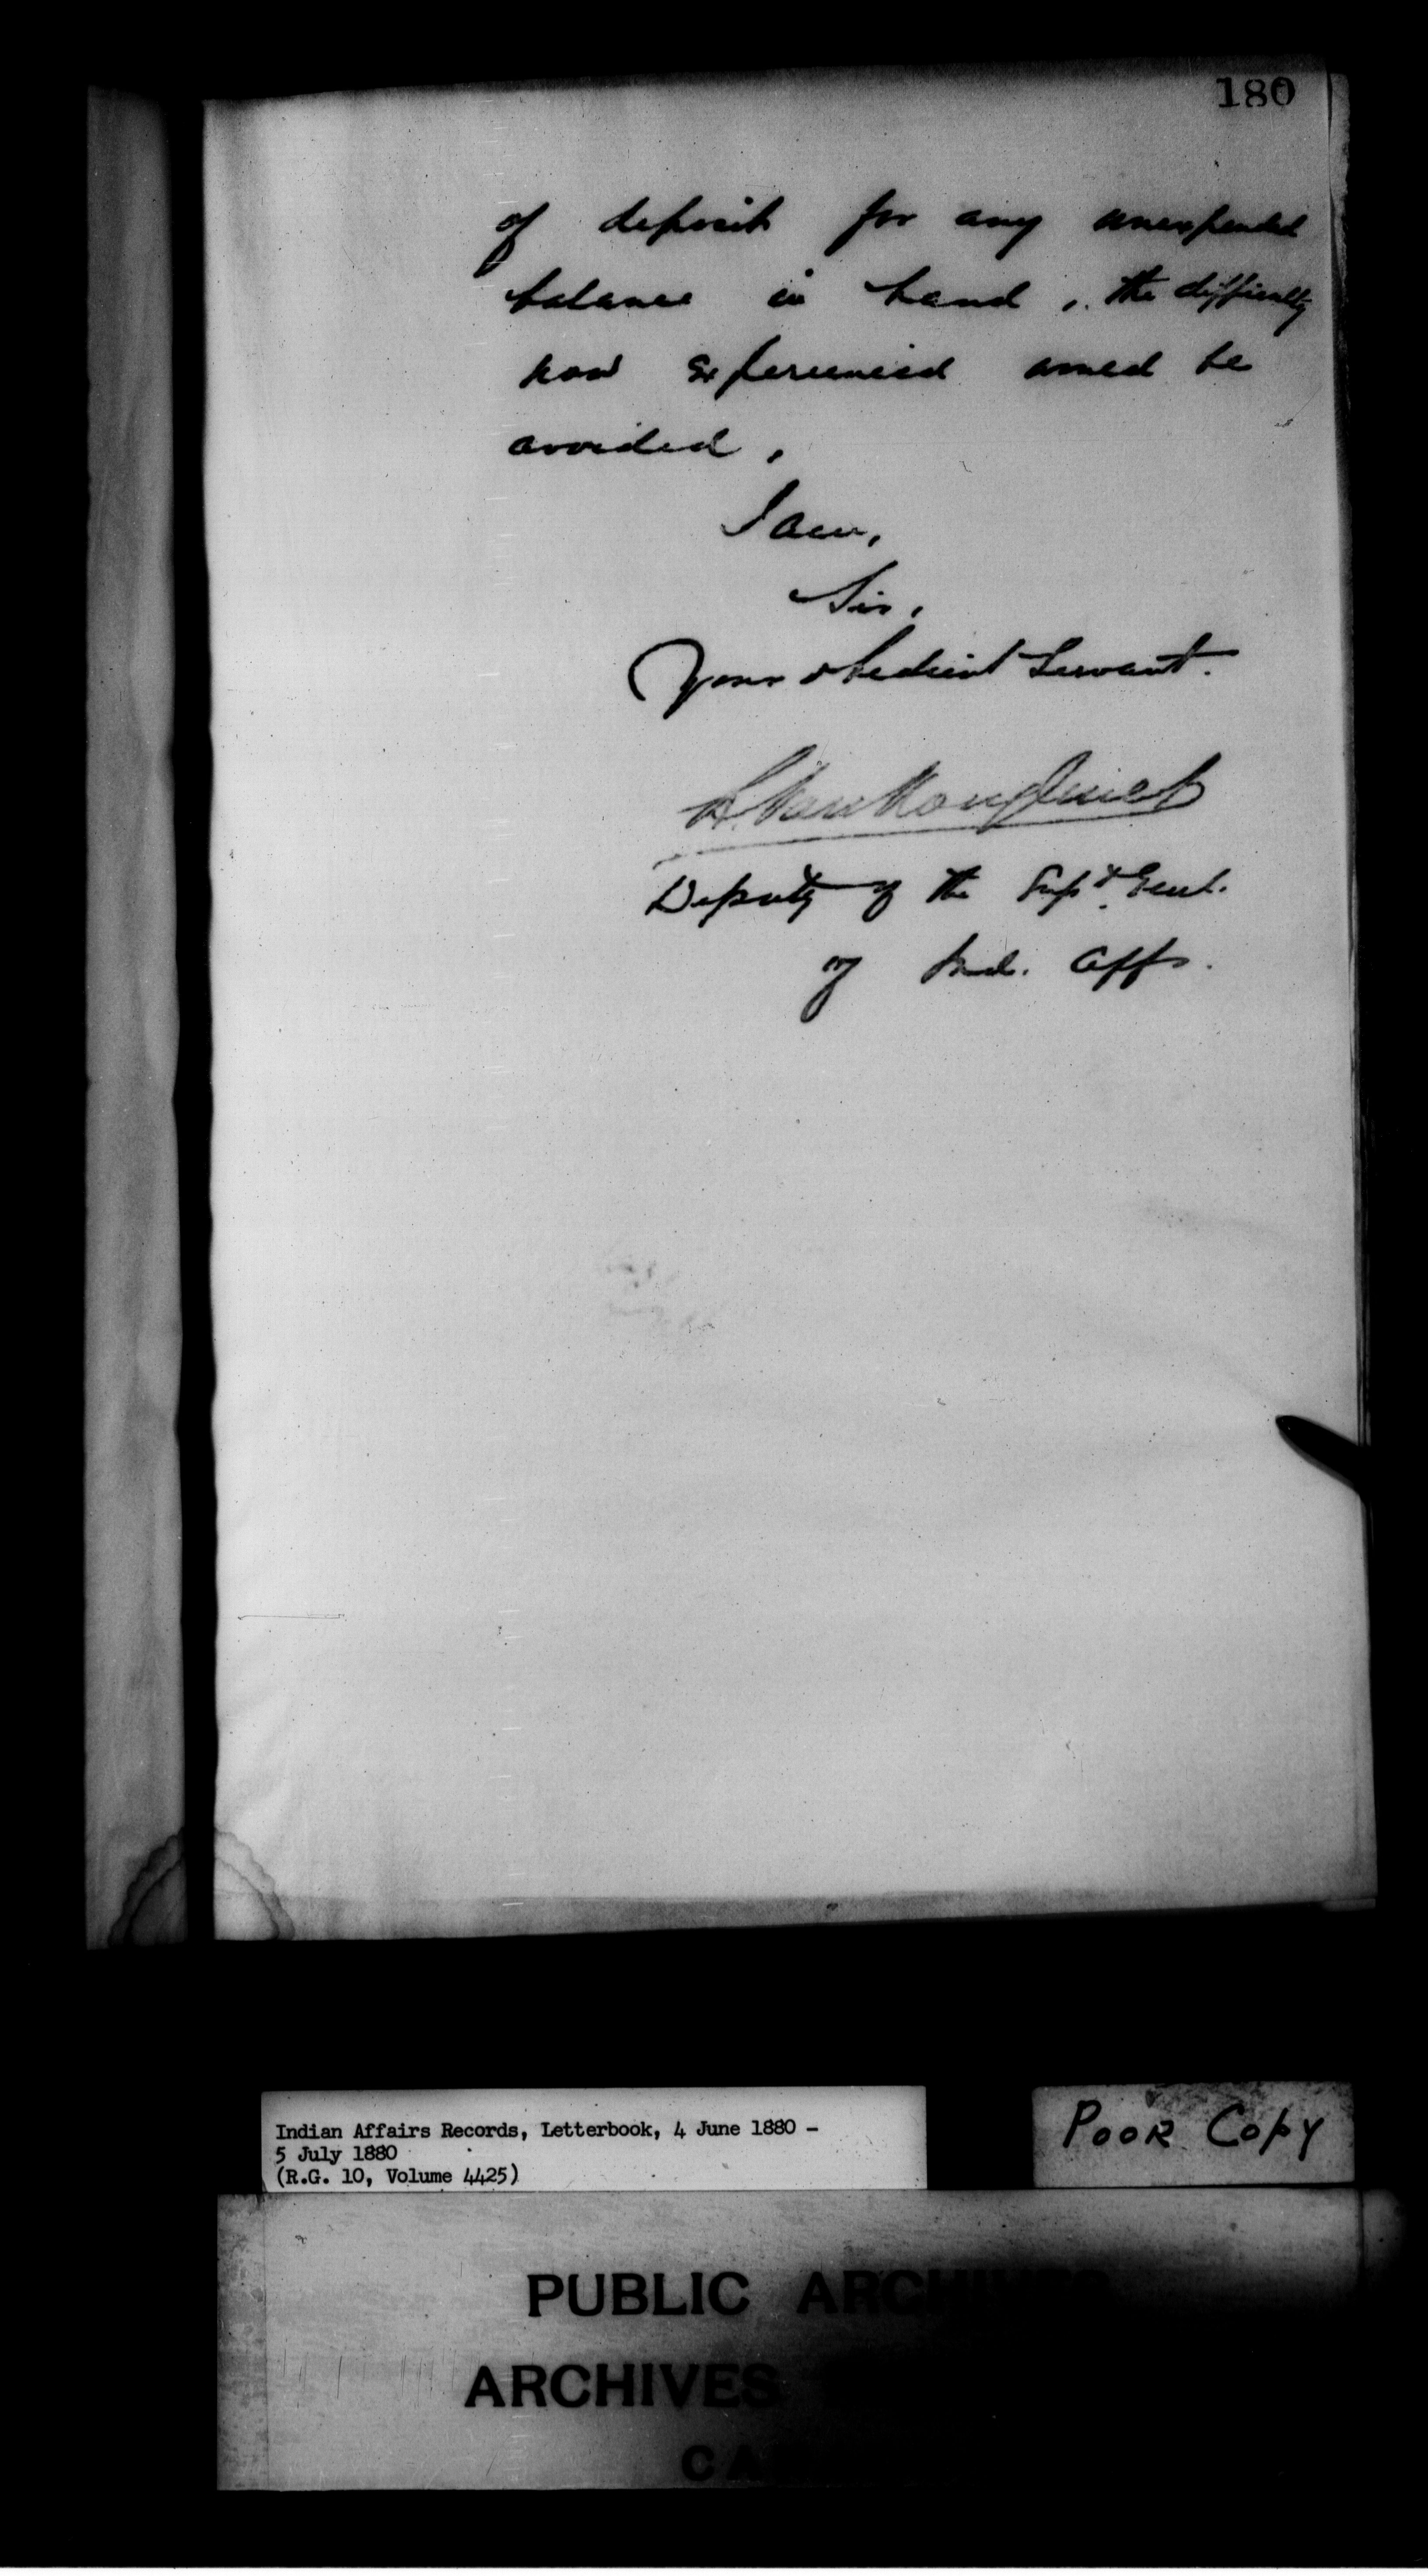 180
of deposit for any unexpended
balance in hand, the difficulty
now experienced would be
avoided.
I am,
Sir,
Your obedient Servant.
L. VanKoughnet
Deputy of the Supt. Genl.
of Ind. Affs.
Indian Affairs Records, Letterbook, 4 June 1880 -
5 July 1880
(R.G. 10, Volume 4425)
POOR COPY
PUBLIC ARCHIVES
ARCHIVES
CA